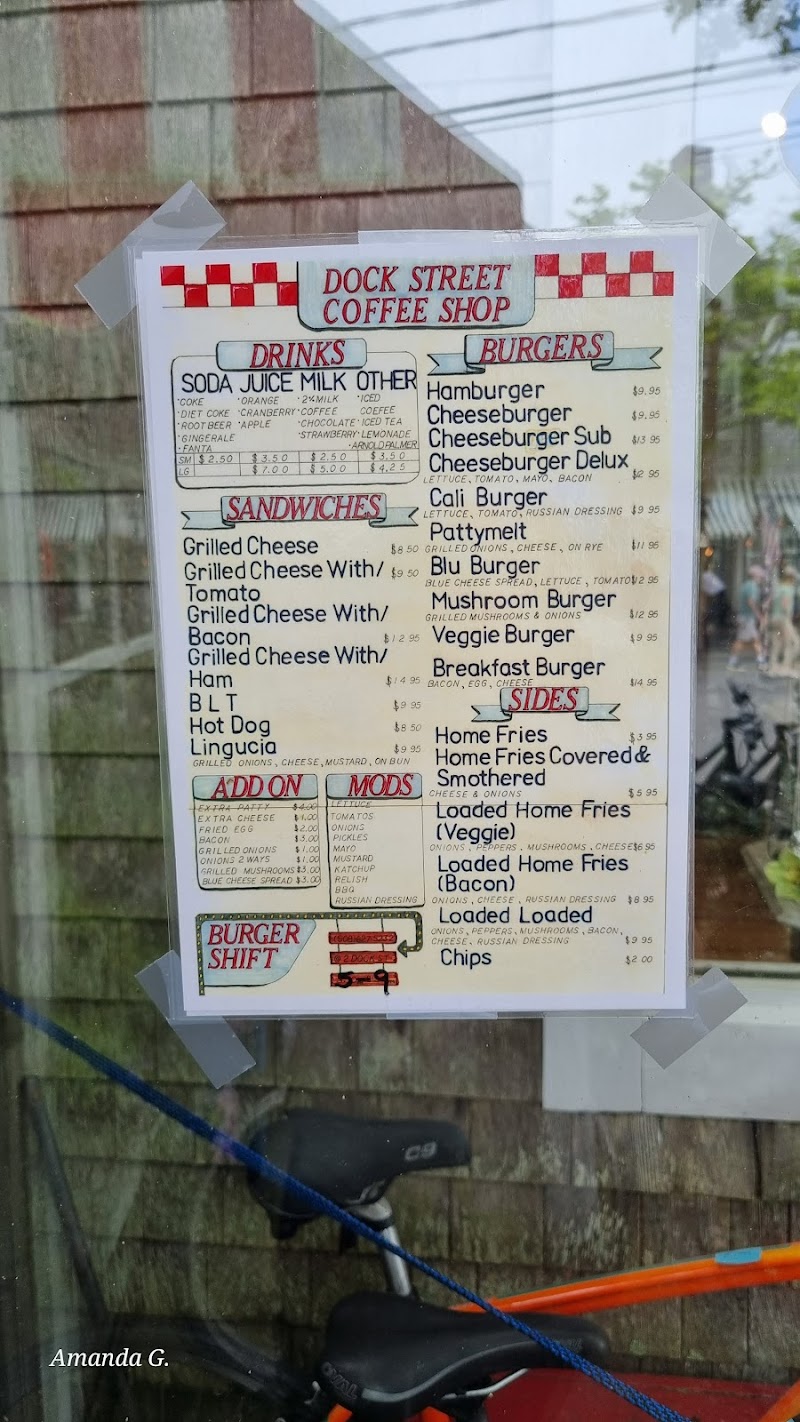 DOCK STREET
COFFEE SHOP
DRINKS
SODA JUICE MILK OTHER
·COKE ·ORANGE ·2% MILK ·ICED
·DIET COKE ·CRANBERRY ·COFFEE COFEEE
·ROOT BEER ·APPLE ·CHOCOLATE ·ICED TEA
·GINGERALE ·STRAWBERRY ·LEMONADE
·FANTA ·ARNOLD PALMER
SM $2.50 $3.50 $2.50 $3.50
LG $7.00 $5.00 $4.25
SANDWICHES
Grilled Cheese $8 50
Grilled Cheese With/ $9 50
Tomato
Grilled Cheese With/
Bacon $12 95
Grilled Cheese With/
Ham $14 95
B L T $9 95
Hot Dog $8 50
Lingucia $9 95
GRILLED ONIONS, CHEESE, MUSTARD, ON BUN
ADD ON
EXTRA PATTY $4.00
EXTRA CHEESE $1.00
FRIED EGG $2.00
BACON $3.00
GRILLED ONIONS $1.00
ONIONS 2 WAYS $1.00
GRILLED MUSHROOMS $3.00
BLUE CHEESE SPREAD $3.00
MODS
LETTUCE
TOMATOS
ONIONS
PICKLES
MAYO
MUSTARD
KATCHUP
RELISH
BBQ
RUSSIAN DRESSING
BURGER
SHIFT
5-9
BURGERS
Hamburger $9.95
Cheeseburger $9.95
Cheeseburger Sub $13 95
Cheeseburger Delux
LETTUCE, TOMATO, MAYO, BACON $12 95
Cali Burger
LETTUCE, TOMATO, RUSSIAN DRESSING $9 95
Pattymelt
GRILLED ONIONS, CHEESE, ON RYE $11 95
Blu Burger
BLUE CHEESE SPREAD, LETTUCE, TOMATO $12 95
Mushroom Burger
GRILLED MUSHROOMS & ONIONS $12 95
Veggie Burger $9 95
Breakfast Burger
BACON, EGG, CHEESE $14 95
SIDES
Home Fries $3 95
Home Fries Covered &
Smothered
CHEESE & ONIONS $5 95
Loaded Home Fries
(Veggie)
ONIONS, PEPPERS, MUSHROOMS, CHEESE $6 95
Loaded Home Fries
(Bacon)
ONIONS, CHEESE, RUSSIAN DRESSING $8 95
Loaded Loaded
ONIONS, PEPPERS, MUSHROOMS, BACON,
CHEESE, RUSSIAN DRESSING $9 95
Chips $2 00
C9
Amanda G.